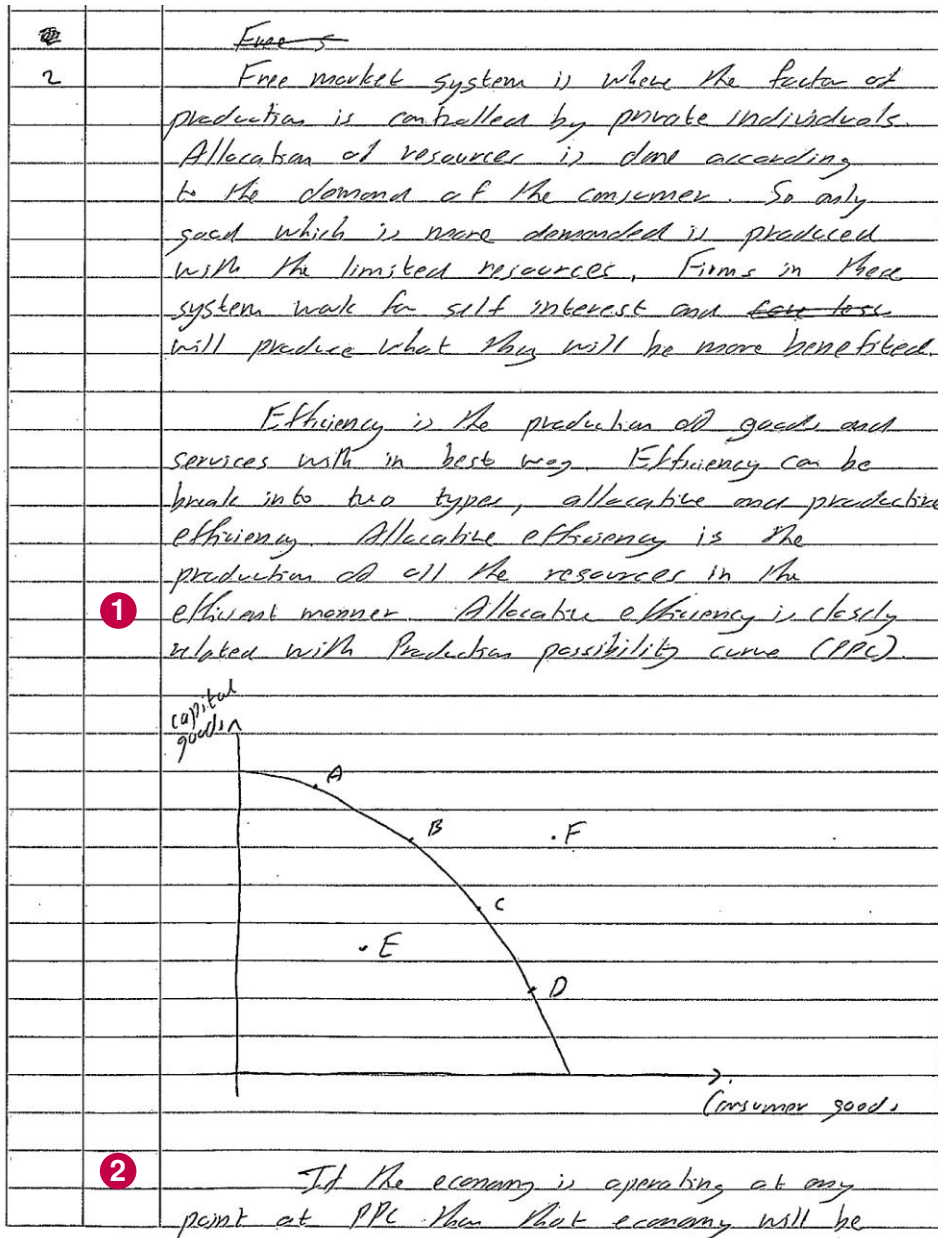 Free s
2 Free market system is where the factor of
production is controlled by private individuals.
Allocation of resources is done according
to the demand of the consumer. So only
good which is more demanded is produced
with the limited resources, Firms in these
system work for self interest and
will produce what they will be more benefited.
Efficiency is the production of goods and
services with in best way. Efficiency can be
break into two types, allocative and productive
efficiency. Allocative efficiency is the
production of all the resources in the
1 efficient manner. Allocative efficiency is closely
related with Production possibility curve (PPC).
capital
goods
A
B
F
C
E
D
Consumer goods
2 If the economy is operating at any
point at PPC than that economy will be